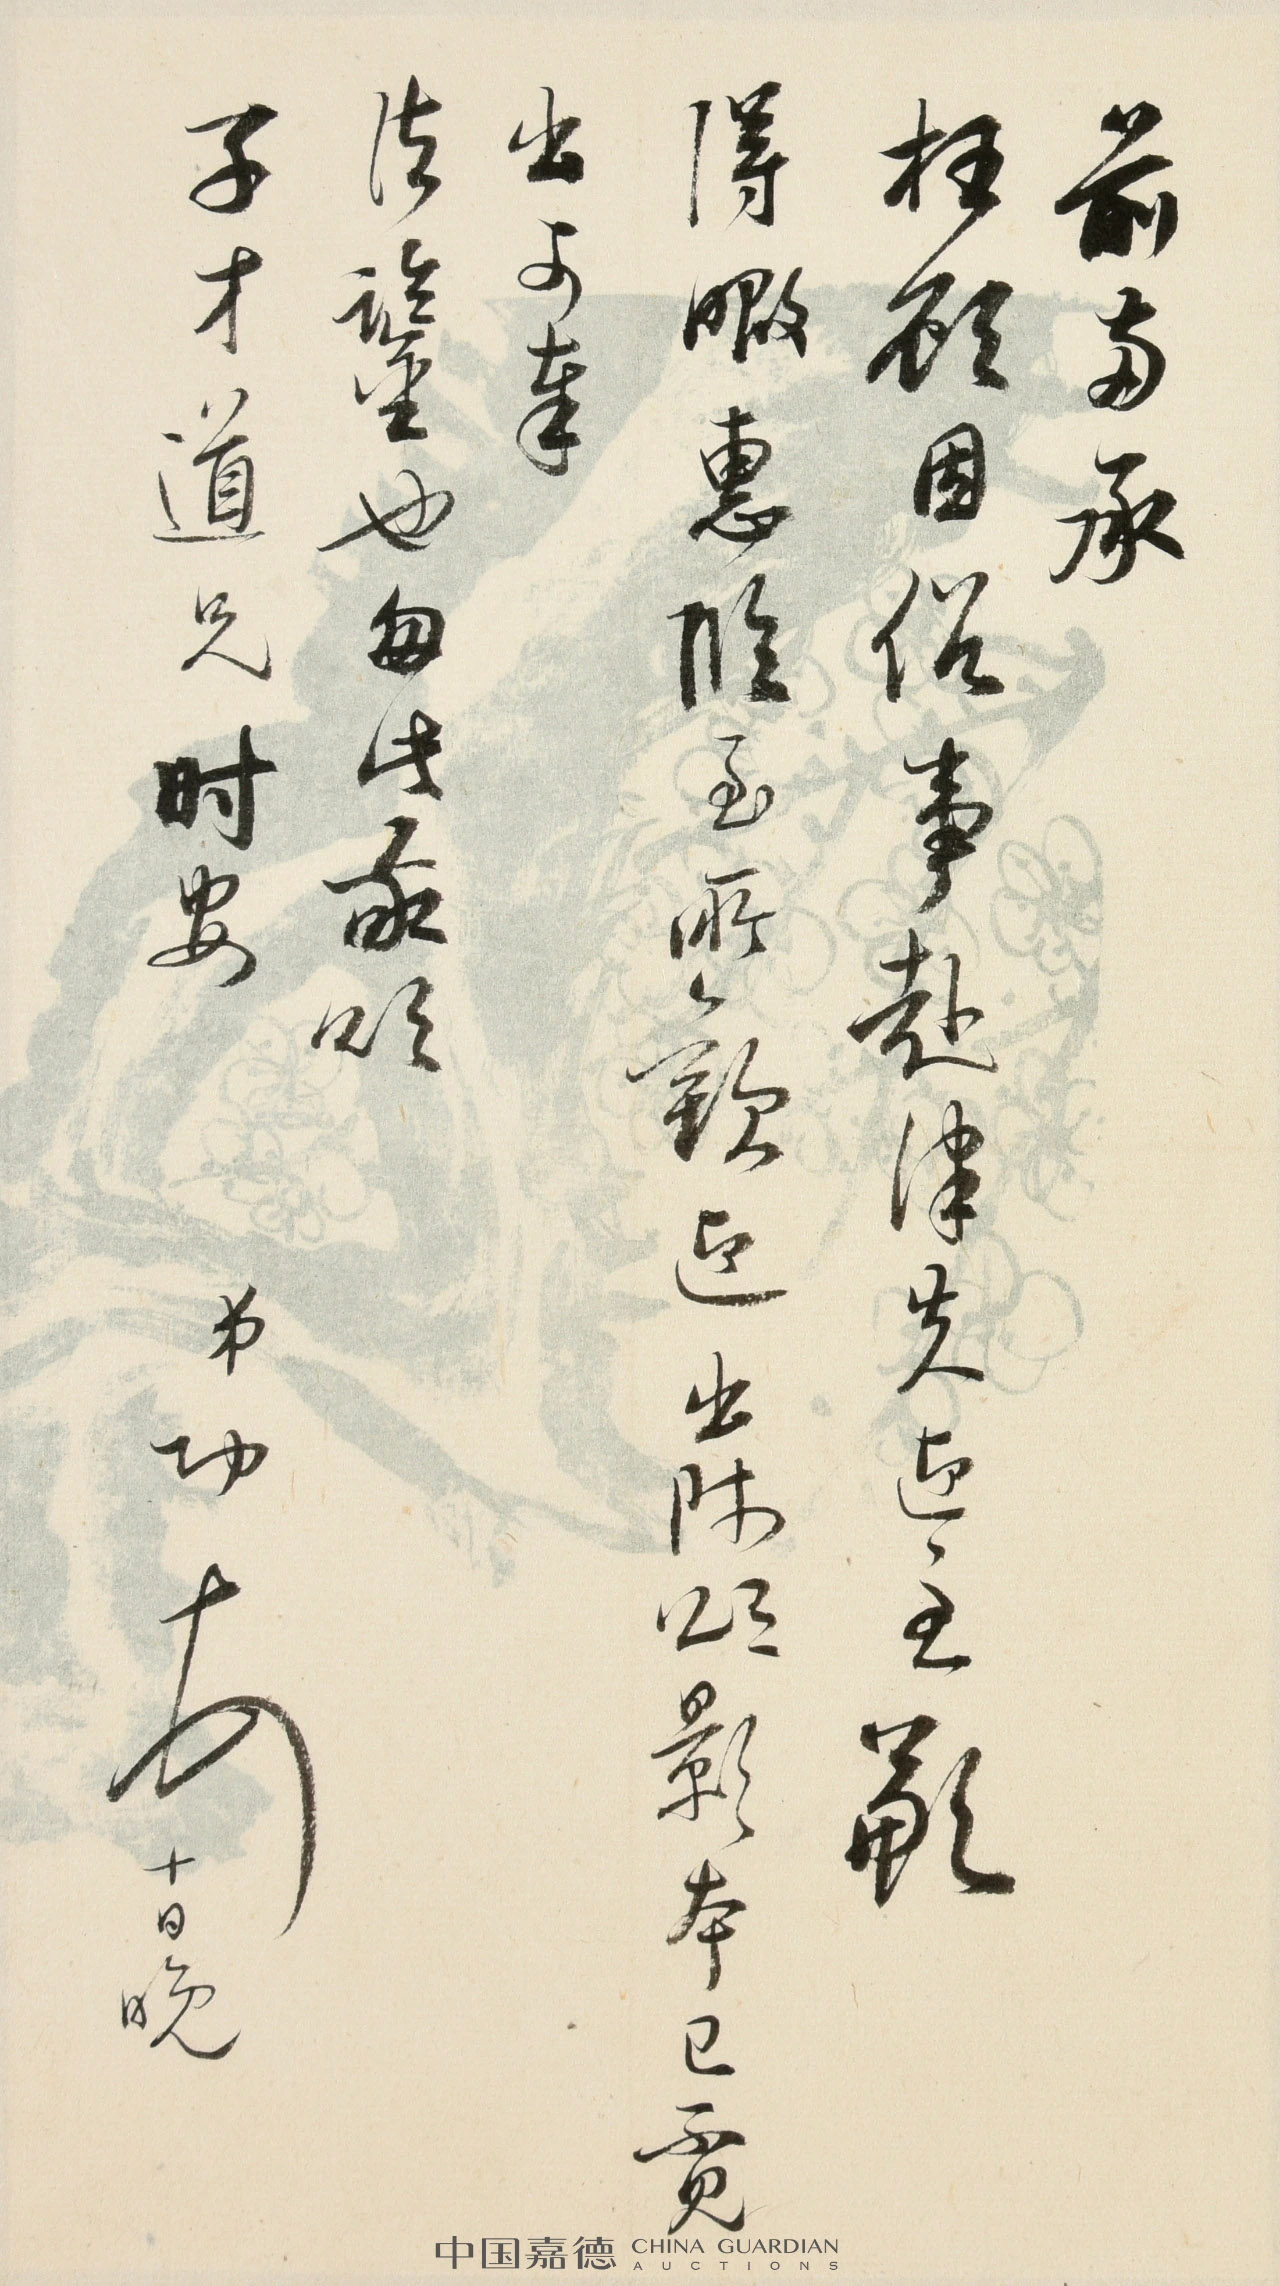 前两承
枉顾因俗事赴津失迎至歉
得暇惠临至所欢迎出师颂影本已觅
出可奉
法鉴也匆此敬颂
子才道兄时安
弟功
十日晚
中国嘉德 CHINA GUARDIAN AUCTIONS